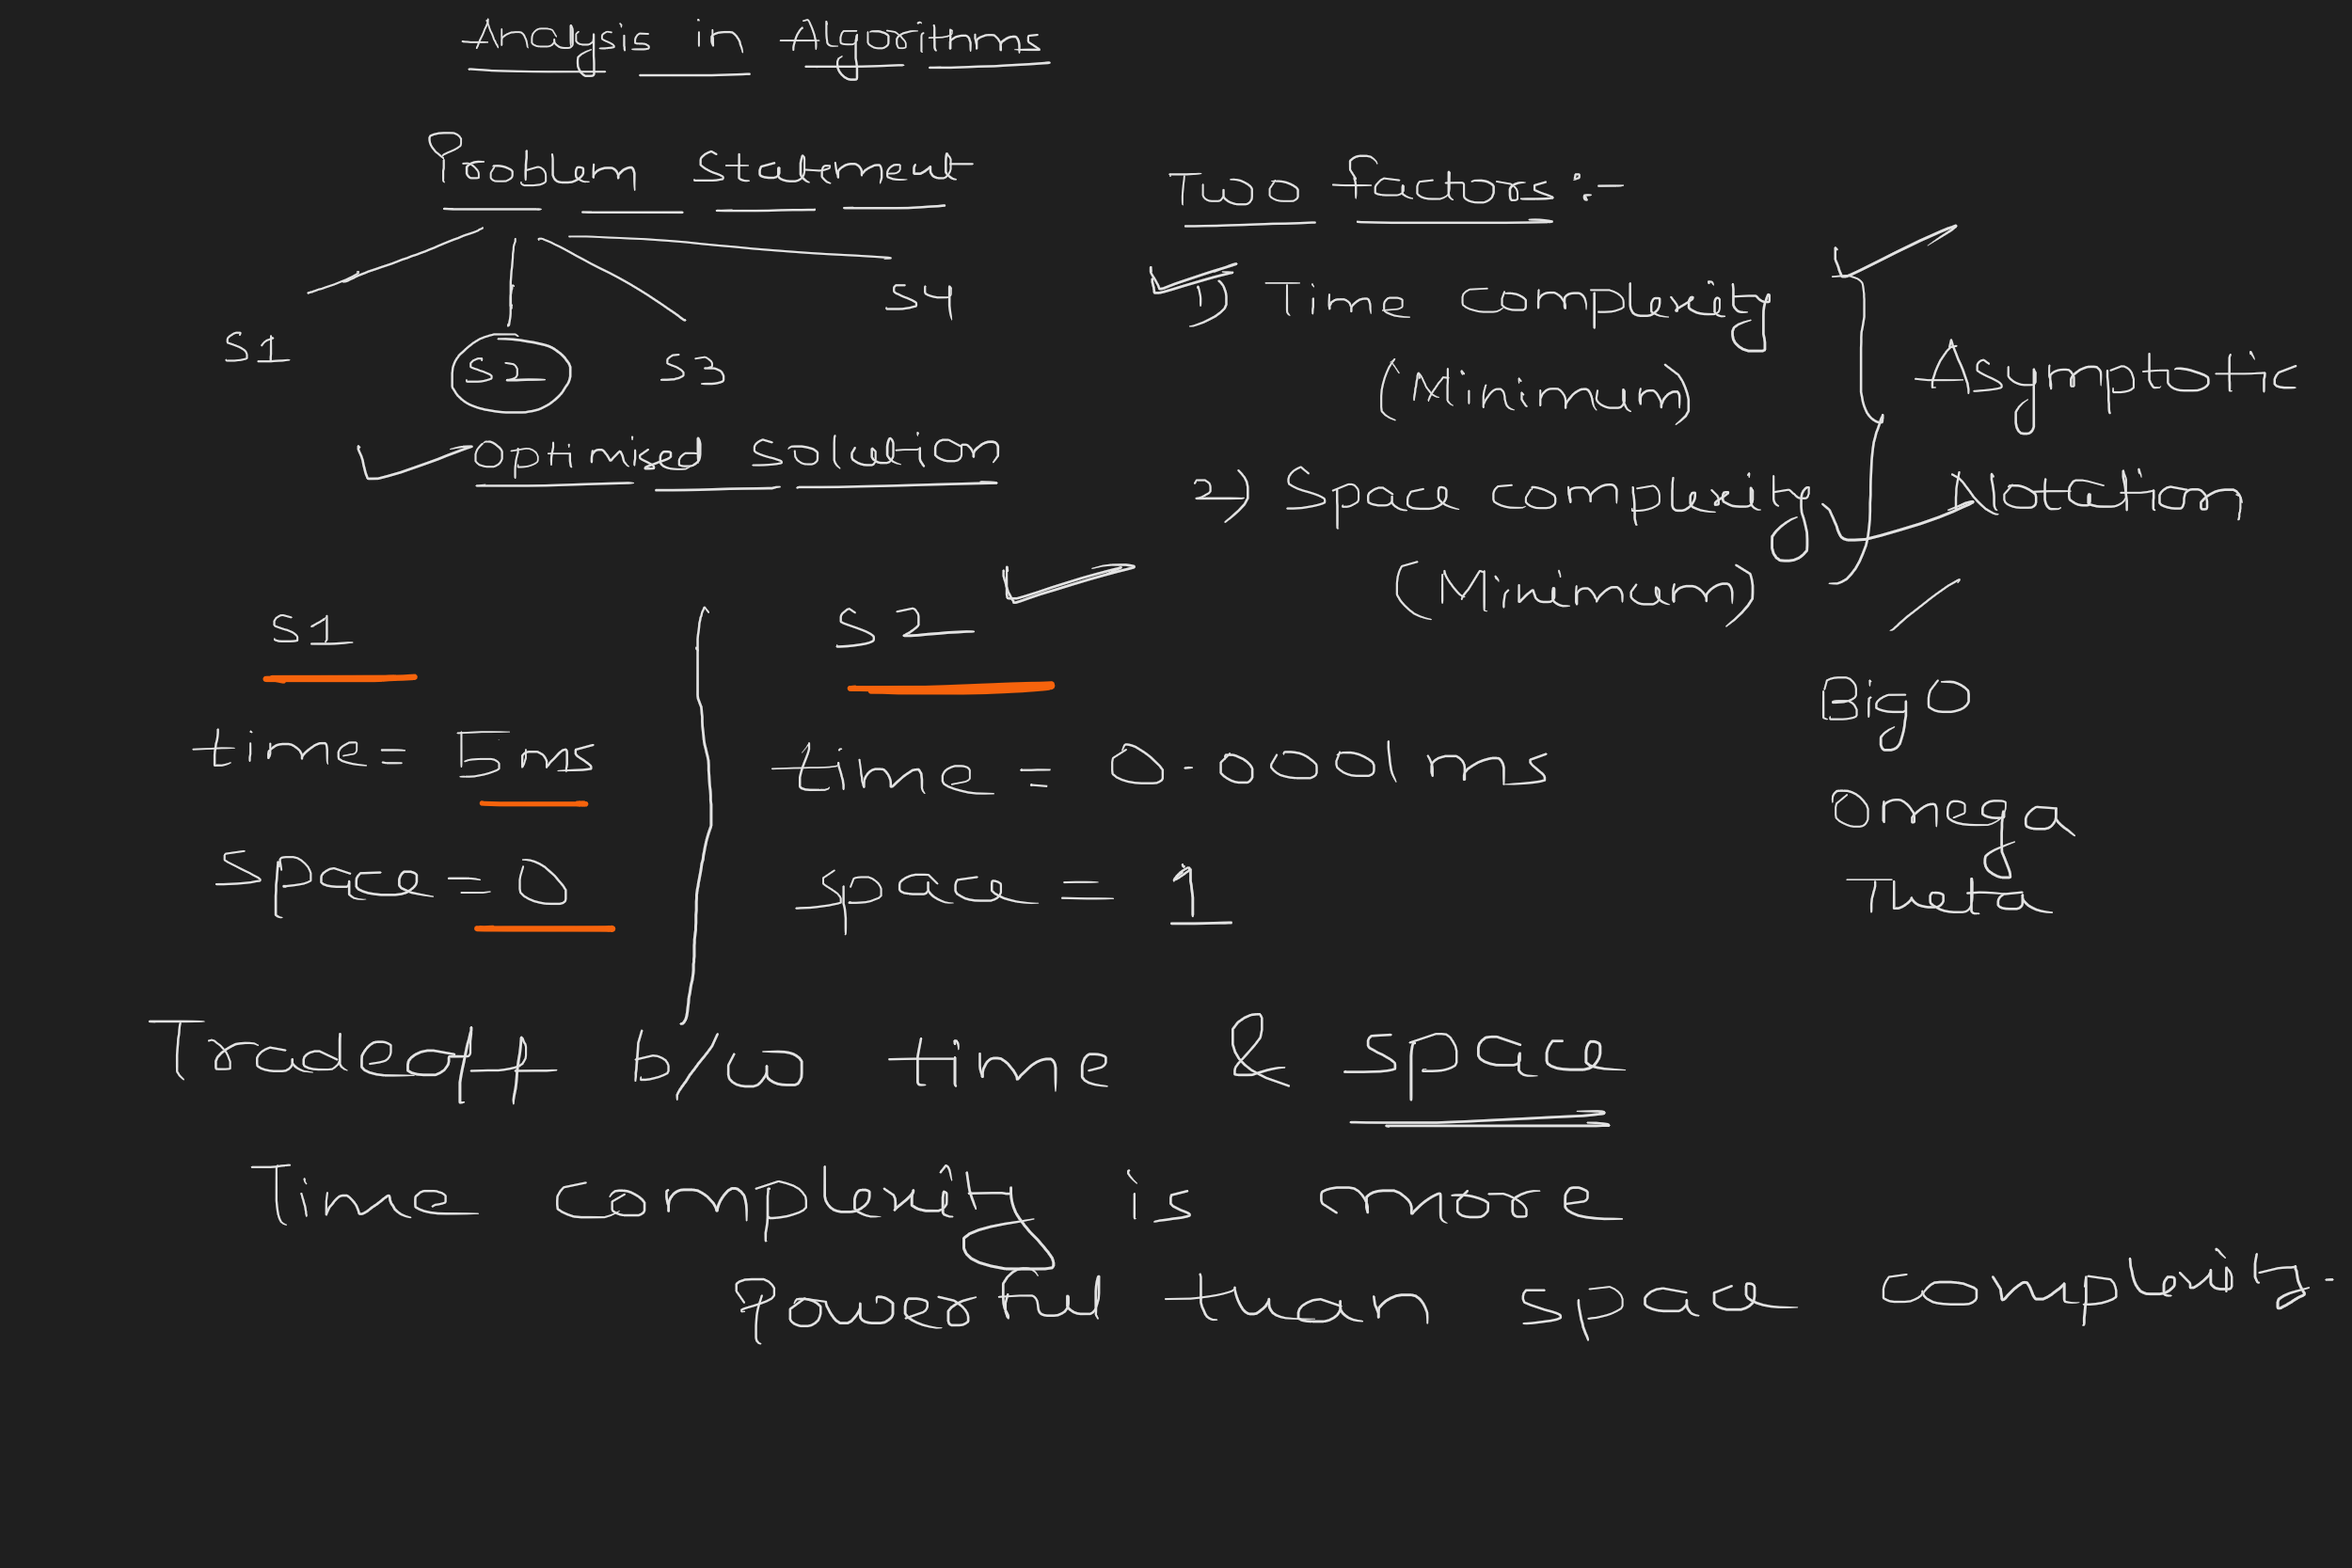 Analysis in Algorithms
Problem Statement
S1
S2
S3
S4
optimized solution
Two factors:-
1) Time complexity
(Minimum)
2) Space complexity
(Minimum)
Asymptotic
Notation
Big O
Omega
Theta
S1
time = 5ms
Space = 0
S2
time = 0.0001ms
space = 1
Tradeoff b/w time & space
Time complexity is more
powerful than space complexity.